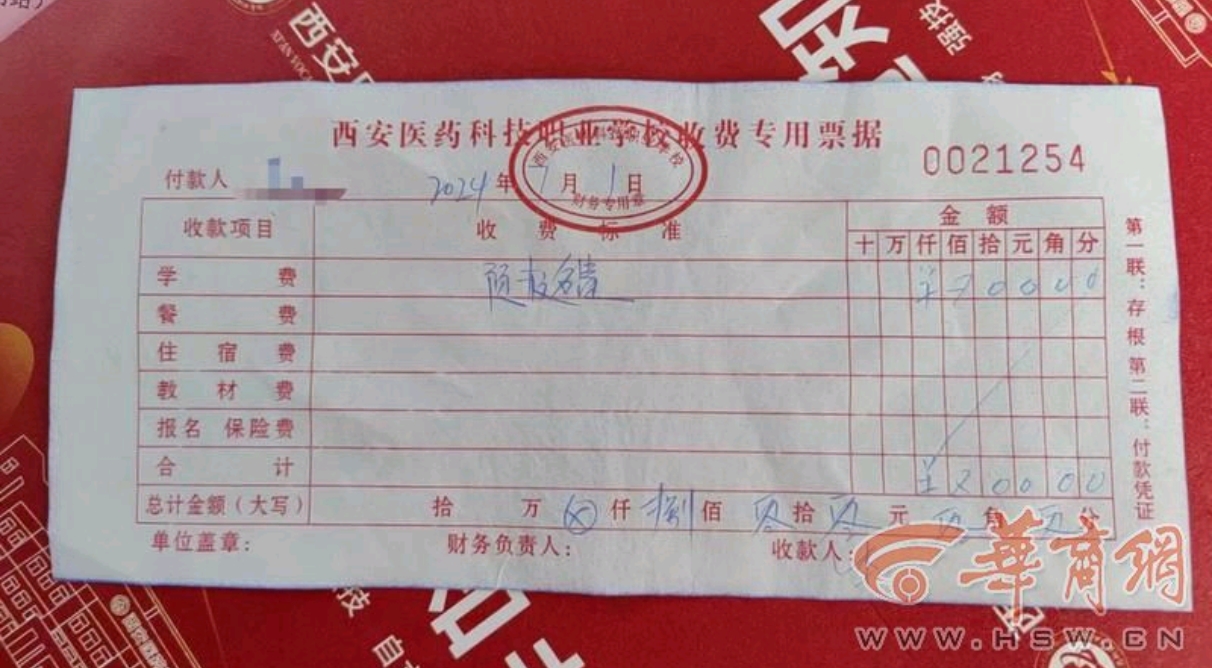 西安医药科技职业学校收费专用票据
0021254
付款人 2024年7月1日
财务专用章
收款项目 收费标准 金额
十万仟佰拾元角分
学费 预报名费 ¥80000
餐费
住宿费
教材费
报名 保险费
合计 ¥80000
总计金额(大写) 拾 万 ⊗仟 捌佰 零拾 零元 零角 零分
单位盖章: 财务负责人: 收款人:
第一联:存根 第二联:付款凭证
華商網
WWW.HSW.CN
西安
强技
技